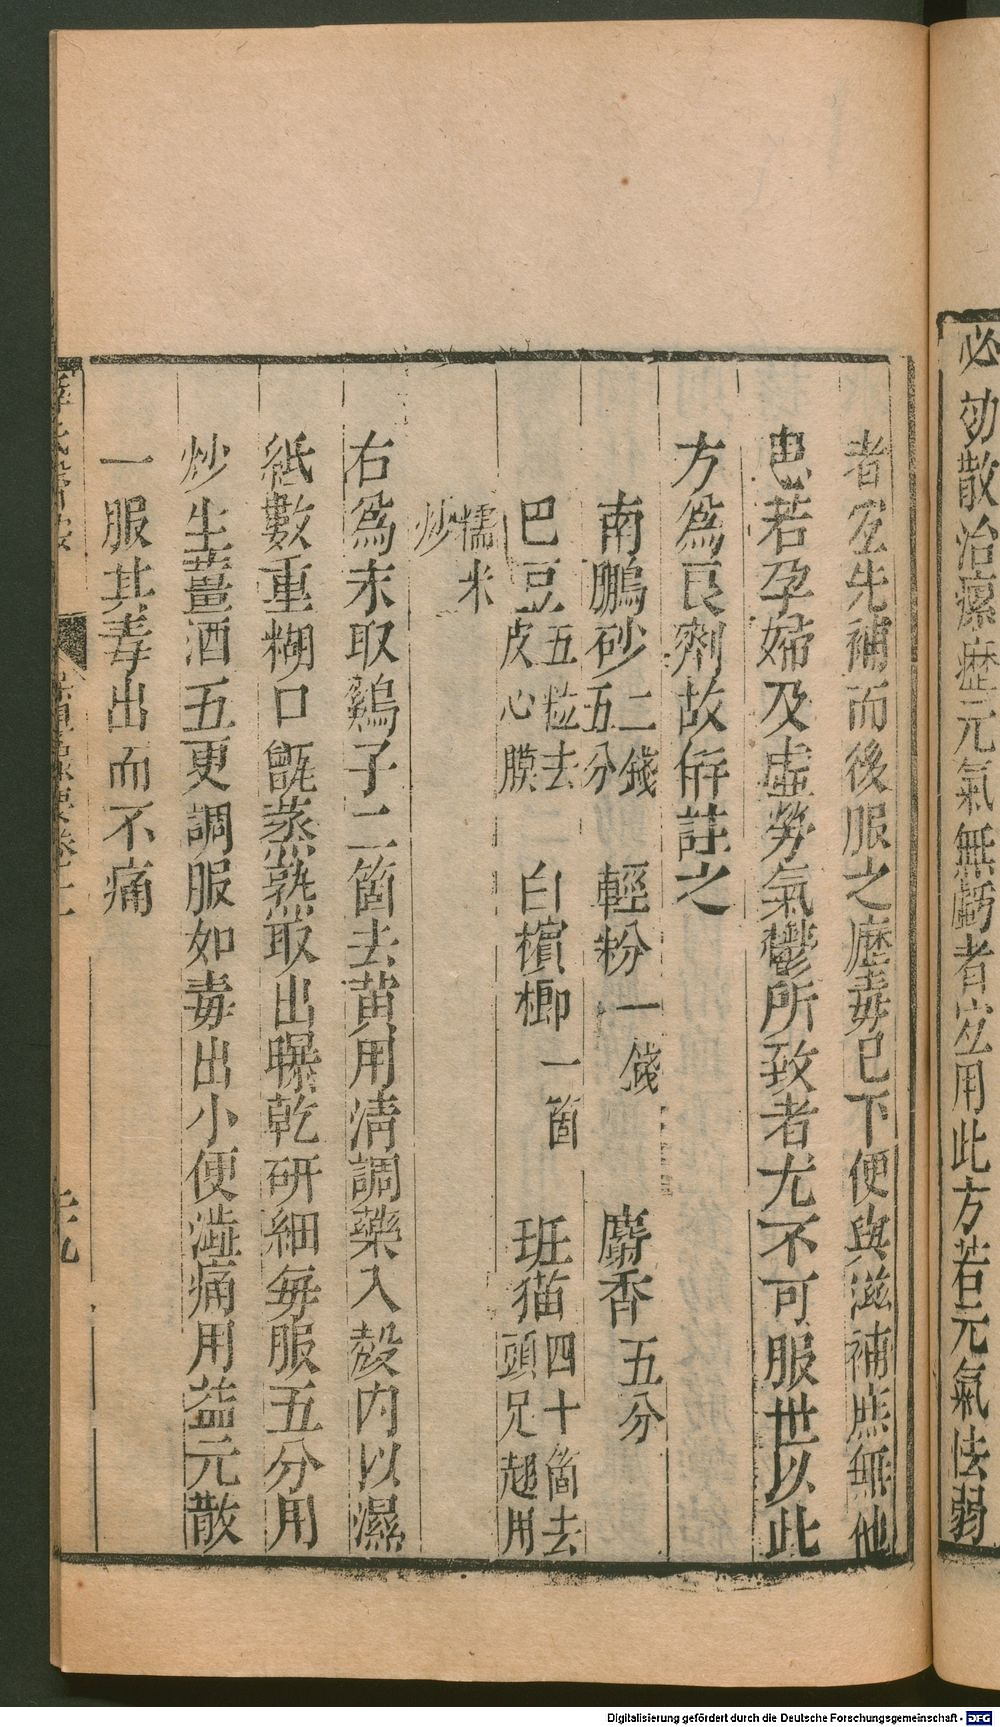 必効散治瘰癧元氣無虧者宜用此方若元氣怯弱
者宜先補而後服之癧毒已下便與滋補庶無他
患若孕婦及虛勞氣鬱所致者尤不可服世以此
方爲良劑故併註之
南鵬砂二錢五分 輕粉一錢 麝香五分
巴豆五粒去皮心膜 白檳榔一箇 班猫四十箇去頭足趐用
糯米炒
右爲末取鷄子二箇去苗用淸調藥入殼内以濕
紙數重糊口甑蒸熟取出曝乾研細每服五分用
炒生薑酒五更調服如毒出小便澁痛用益元散
一服其毒出而不痛
Digitalisierung gefördert durch die Deutsche Forschungsgemeinschaft - DFG